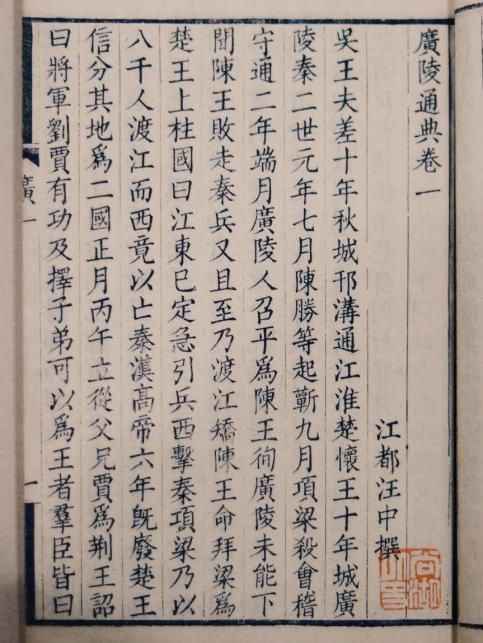 廣陵通典卷一
江都汪中撰
吳王夫差十年秋城邗溝通江淮楚懷王十年城廣
陵秦二世元年七月陳勝等起蘄九月項梁殺會稽
守通二年端月廣陵人召平為陳王徇廣陵未能下
聞陳王敗走秦兵又且至乃渡江矯陳王命拜梁為
楚王上柱國曰江東已定急引兵西擊秦項梁乃以
八千人渡江而西竟以亡秦漢高帝六年旣廢楚王
信分其地爲二國正月丙午立從父兄賈爲荆王詔
曰將軍劉賈有功及擇子弟可以爲王者羣臣皆曰
廣一
一